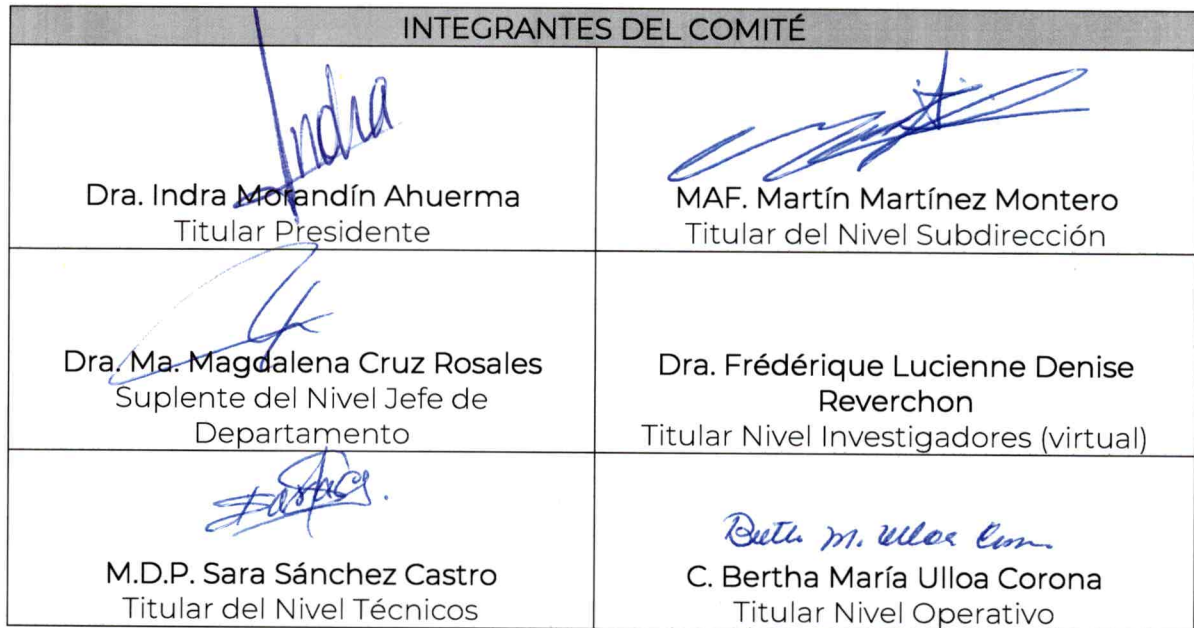 INTEGRANTES DEL COMITÉ
Indra
Dra. Indra Morandín Ahuerma
Titular Presidente
MAF. Martín Martínez Montero
Titular del Nivel Subdirección
Dra. Ma. Magdalena Cruz Rosales
Suplente del Nivel Jefe de
Departamento
Dra. Frédérique Lucienne Denise
Reverchon
Titular Nivel Investigadores (virtual)
M.D.P. Sara Sánchez Castro
Titular del Nivel Técnicos
M. Ulloa
C. Bertha María Ulloa Corona
Titular Nivel Operativo